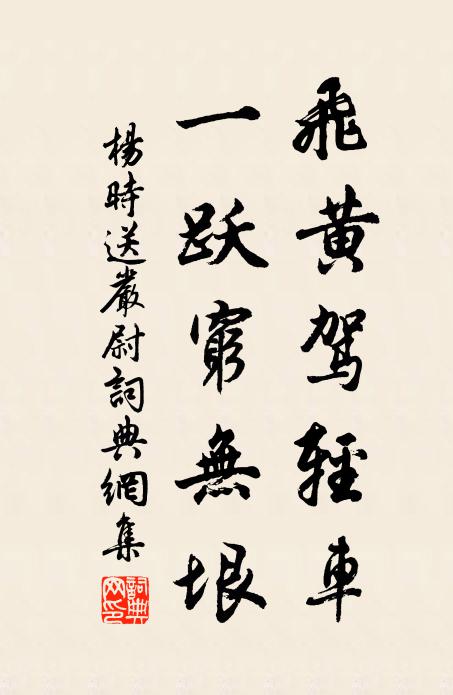 飛黃駕輕車
一跃窮無垠
楊時送嚴尉詞典網集
詞典网印